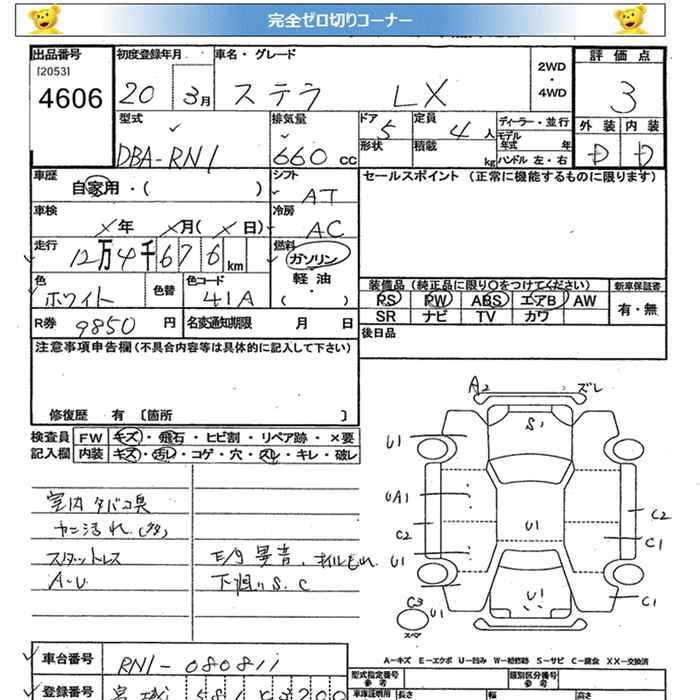 完全ゼロ切りコーナー
出品番号 初度登録年月 車名・グレード 2WD・4WD 評価点
[2053]
4606 20 3月 ステラ LX 3
型式 排気量 ドア 5 定員 4人 ディーラー・並行 外装 内装
モデル年式 年
DBA-RN1 660cc 形状 積載 kg ハンドル 左・右 D D
車歴 自家用・( ) シフト AT セールスポイント (正常に機能するものに限ります)
車検 ×年 ×月(×日) 冷房 AC
走行 12万4千676km 燃料 ガソリン
軽油
・( )
色 ホワイト 色替 色コード 41A
装備品 (純正品に限り○をつけてください) 新車保証書
PS PW ABS エアB AW 有・無
SR ナビ TV カワ
R券 9850円 名変通知期限 月 日 後日品
注意事項申告欄(不具合内容等は具体的に記入して下さい)
修復歴 有 [箇所 ]
検査員 FW キズ・飛石・ヒビ割・リペア跡・×要
記入欄 内装 キズ・汚レ・コゲ・穴・スレ・キレ・破レ
室内タバコ臭
ヤニ汚れ(多)
スタットレス E/g異音、オイルもれ
A-U 下廻りS.C
A2 ズレ
S1
U1
UA1
C2 U1 C2
U1 C1
C3 U1 U1 C1
スペア
A-キズ E-エクボ U-凹み W-補修跡 S-サビ C-腐食 XX-交換済
車台番号 RN1-080811
型式指定番号 参考 類別区分番号 参考
登録番号 宮城 581 200
車庫証明用 長さ 幅 高さ